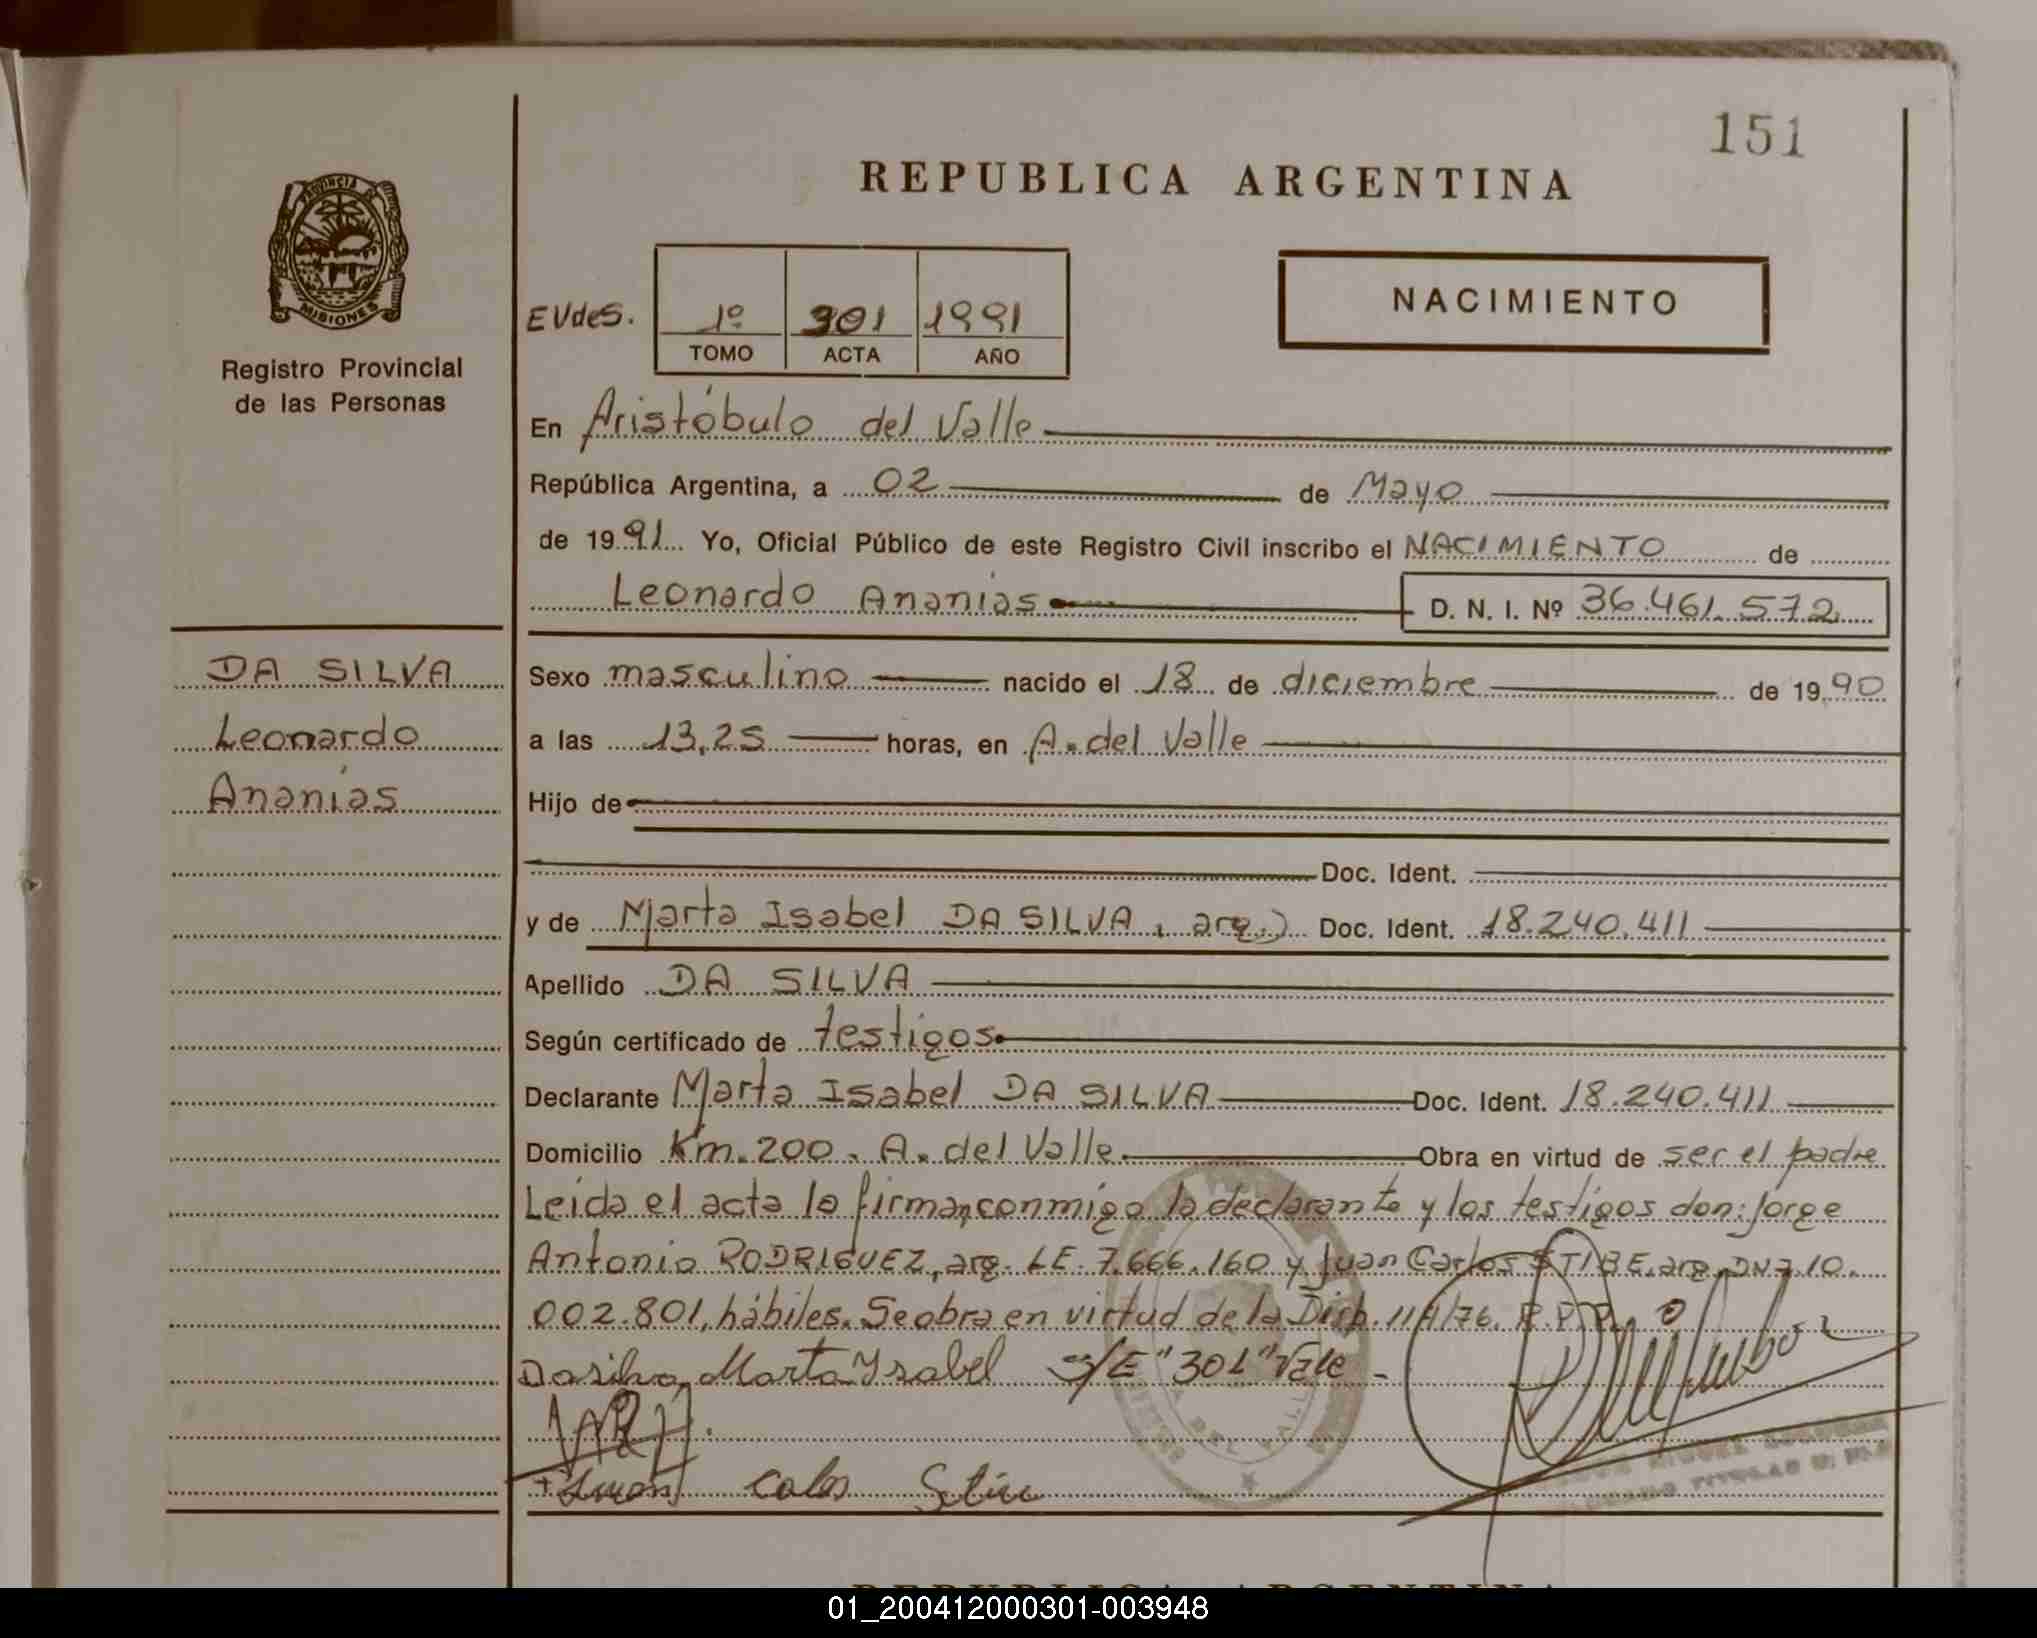 151
REPUBLICA ARGENTINA
PROVINCIA DE
MISIONES
Registro Provincial
de las Personas
EVdeS.
1º 301 1991
TOMO ACTA AÑO
NACIMIENTO
En Aristóbulo del Valle
República Argentina, a 02 de Mayo
de 1991 Yo, Oficial Público de este Registro Civil inscribo el NACIMIENTO de
Leonardo Ananias D. N. I. Nº 36.461.572
DA SILVA
Leonardo
Ananías
Sexo masculino nacido el 18 de diciembre de 1990
a las 13,25 horas, en A. del Valle
Hijo de
Doc. Ident.
y de Marta Isabel DA SILVA, arg. Doc. Ident. 18.240.411
Apellido DA SILVA
Según certificado de testigos
Declarante Marta Isabel DA SILVA Doc. Ident. 18.240.411
Domicilio Km. 200 - A. del Valle. Obra en virtud de ser el padre
Leída el acta la firman conmigo la declarante y los testigos don: Jorge
Antonio RODRIGUEZ, arg. LE. 7.666.160 y Juan Carlos STIBE, arg. DNI 10.
002.801, hábiles. Se obra en virtud de la Disp. 114/76. R.P.P.
Dasilva, Marta Ysabel S/E "301" Vale -
DEL VALLE
01_200412000301-003948